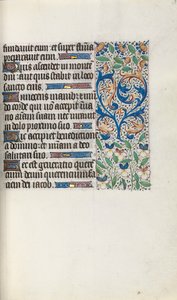 fundavit eum: et super flumina
preparavit eum.
Quis ascendet in montem
dni: aut quis stabit in loco
sancto eius.
Innocens manibus et mundo
corde qui non accepit in va
no animam suam nec iuravit
in dolo proximo suo.
Hic accipiet benedictionem
a domino: et misericordiam a deo
salutari suo.
Hec est generatio queren
cium deum querencium fa
ciem dei iacob.